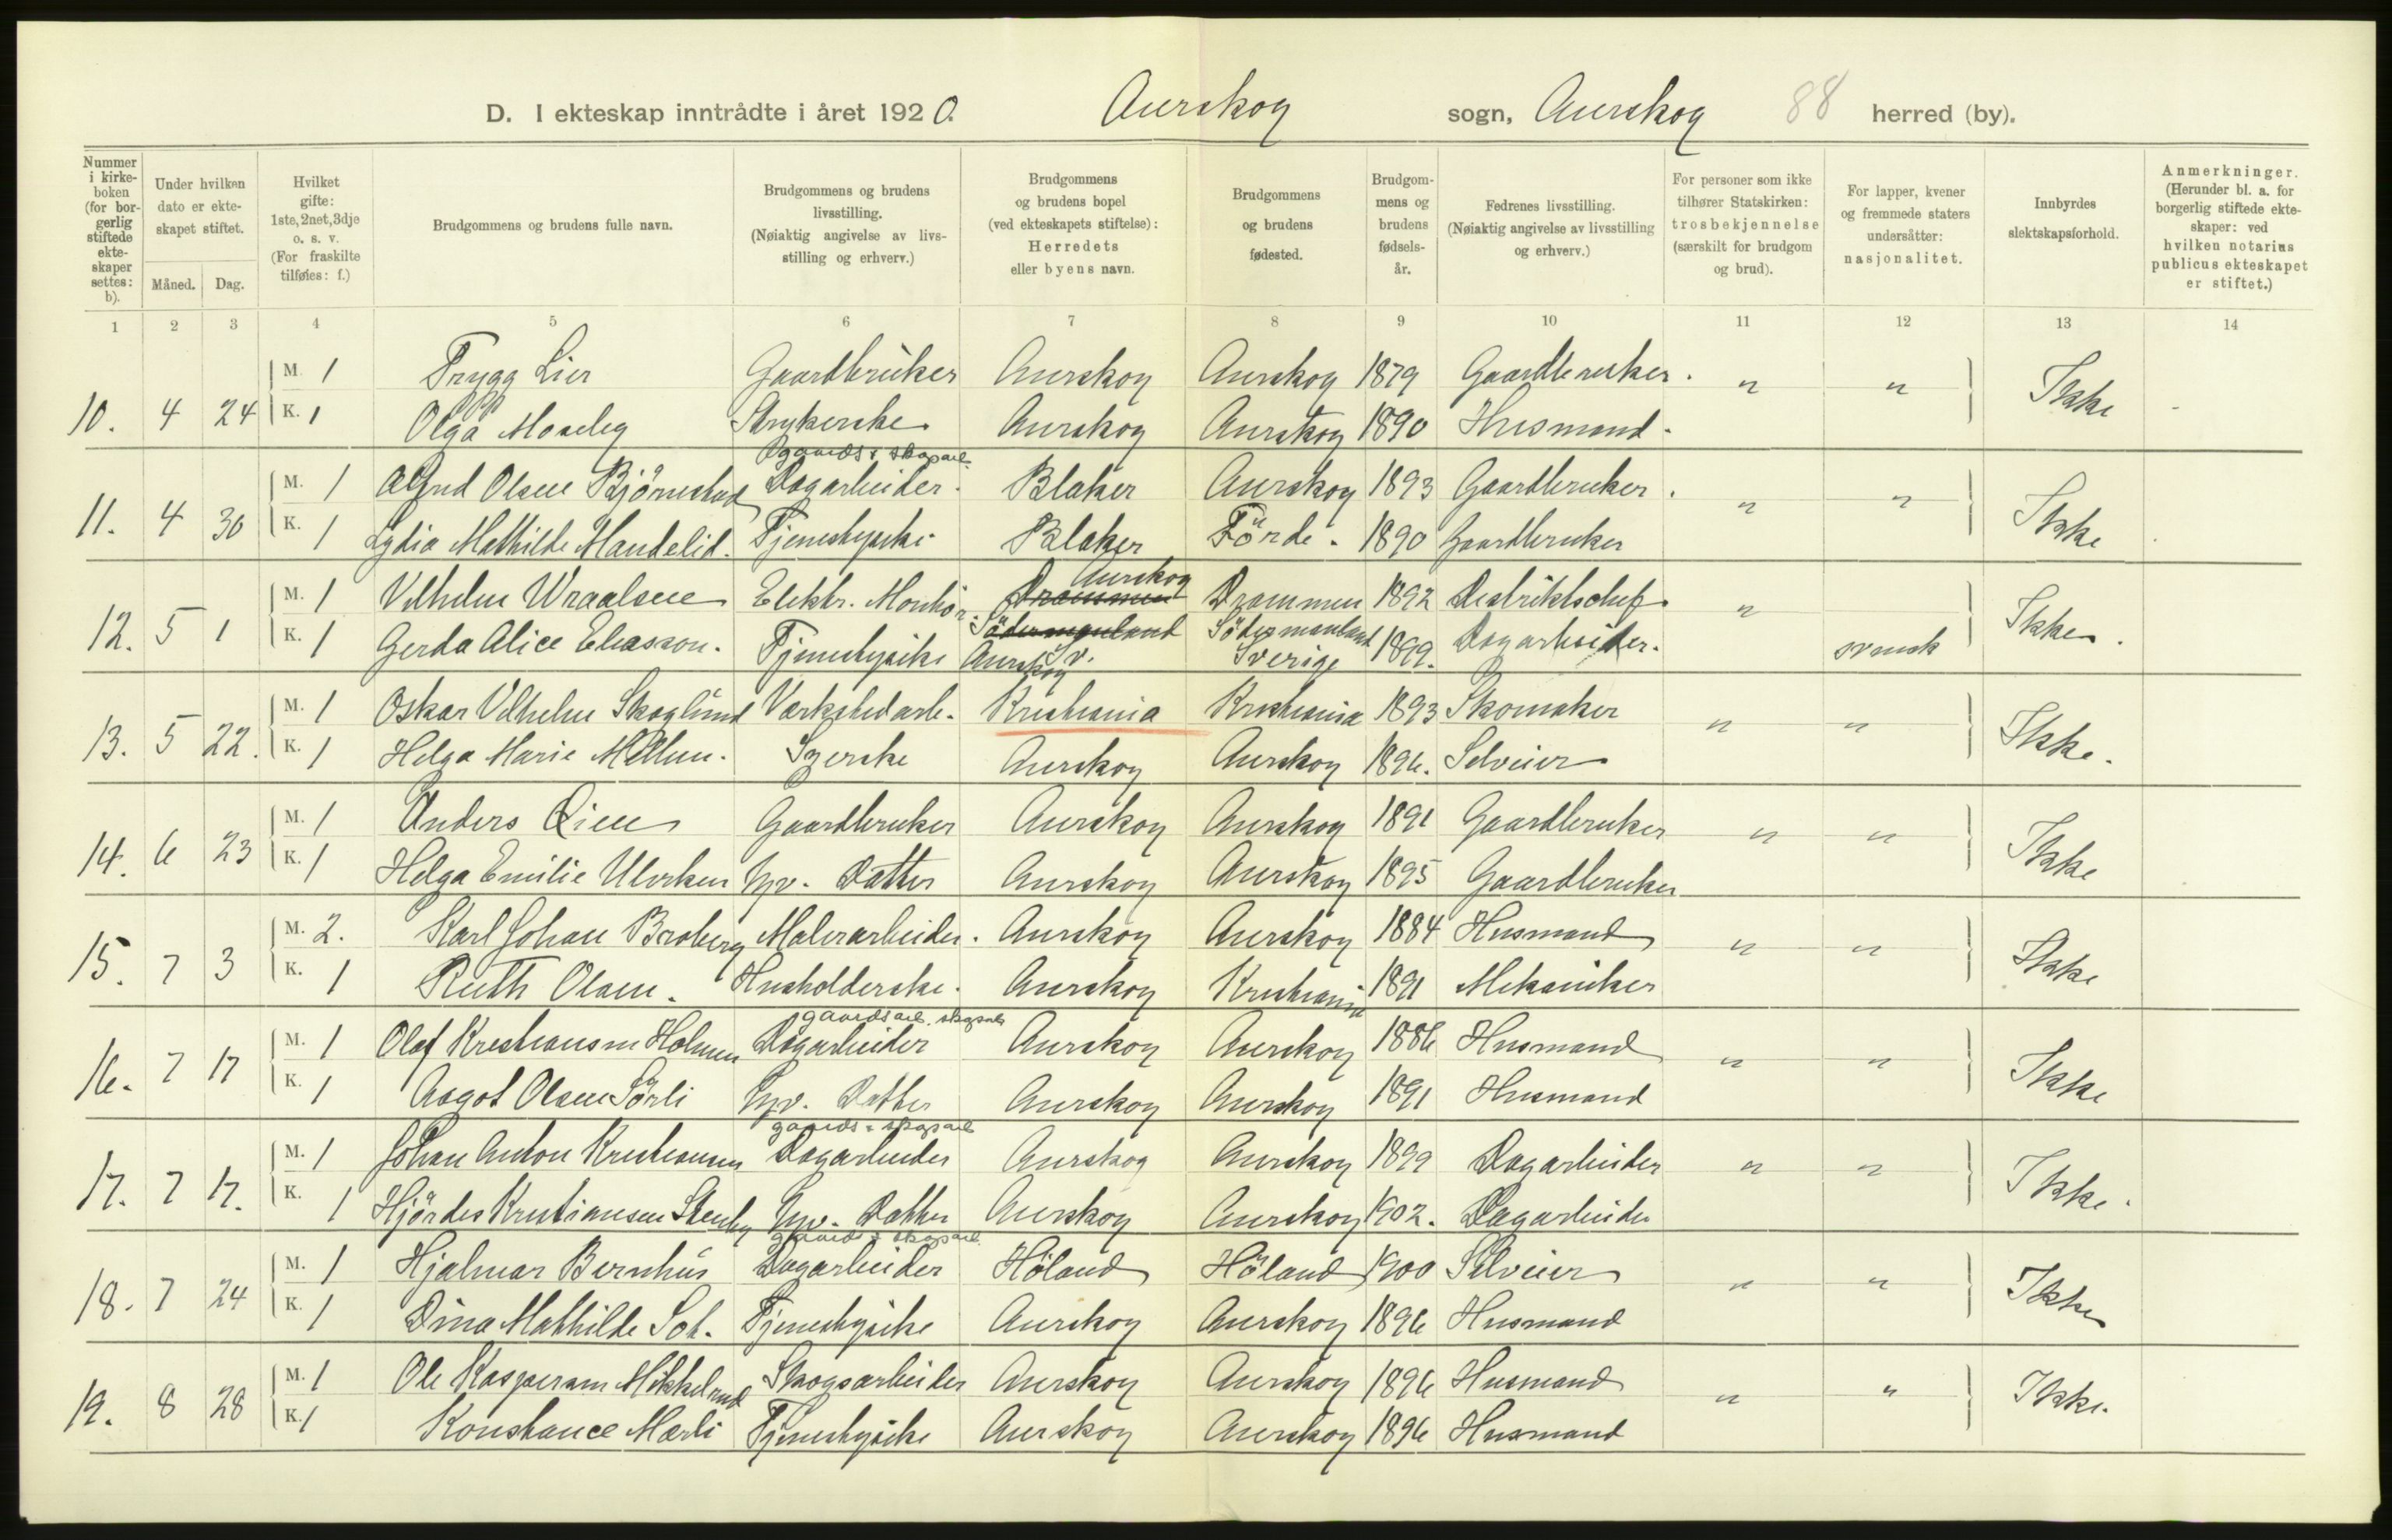 D. I ekteskap inntrådte i året 1920. Aurskog sogn, Aurskog 88 herred (by).
Nummer i kirke-boken (for bor-gerlig stiftede ekte-skaper settes: b).
Under hvilken dato er ekte-skapet stiftet.
Måned. Dag.
Hvilket gifte: 1ste, 2net, 3dje o. s. v. (For fraskilte tilføies: f.)
Brudgommens og brudens fulle navn.
Brudgommens og brudens livsstilling. (Nøiaktig angivelse av livs-stilling og erhverv.)
Brudgommens og brudens bopel (ved ekteskapets stiftelse): Herredets eller byens navn.
Brudgommens og brudens fødested.
Brudgom-mens og brudens fødsels-år.
Fedrenes livsstilling. (Nøiaktig angivelse av livsstilling og erhverv.)
For personer som ikke tilhører Statskirken: trosbekjennelse (særskilt for brudgom og brud).
For lapper, kvener og fremmede staters undersåtter: nasjonalitet.
Innbyrdes slektskapsforhold.
Anmerkninger. (Herunder bl. a. for borgerlig stiftede ekte-skaper: ved hvilken notarius publicus ekteskapet er stiftet.)
1 2 3 4 5 6 7 8 9 10 11 12 13 14
M. 1 Trygg Lier Gaardbruker Aurskog Aurskog 1879 Gaardbruker. " "
10. 4 24 K. 1 Olga Moseby Strykerske Aurskog Aurskog 1890 Husmand. Ikke
gaards & skogsarb.
M. 1 Alfred Olsen Björnstad Dagarbeider. Blaker Aurskog 1893 Gaardbruker. " "
11. 4 30 K. 1 Lydia Mathilde Mandelid. Tjenestepike. Blaker Förde. 1890 Gaardbruker Ikke
Aurskog
M. 1 Vilhelm Wraalsen Elektr. Montör. Drammen Drammen 1892 Distriktschef. "
12. 5 1 K. 1 Gerda Alice Eliasson. Tjenestepike Södermanland Sv. Aurskog Södermanland Sverige 1899. Dagarbeider. svensk Ikke.
M. 1 Oskar Vilhelm Skoglund Værkstedarb. Kristiania Kristiania 1893 Skomaker " "
13. 5 22. K. 1 Helga Marie Mellem. Syerske Aurskog Aurskog 1896. Selveier Ikke.
M. 1 Anders Lien Gaardbruker Aurskog Aurskog 1891 Gaardbruker " "
14. 6 23 K. 1 Helga Emilie Ulverken Hjv. Datter Aurskog Aurskog 1895 Gaardbruker Ikke
M. 2. Karl Johan Broberg Malerarbeider. Aurskog Aurskog 1884 Husmand " "
15. 7 3 K. 1 Ruth Olsen. Husholderske. Aurskog Kristiania 1891 Mekaniker Ikke
gaardsarb. skogsarb
M. 1 Olaf Kristiansen Holmen Dagarbeider Aurskog Aurskog 1886 Husmand " "
16. 7 17 K. 1 Aagot Olsen Sörli Hjv. Datter Aurskog Aurskog 1891 Husmand Ikke
gaards & skogsarb
M. 1 Johan Anton Kristiansen Dagarbeider Aurskog Aurskog 1899 Dagarbeider " "
17. 7 17. K. 1 Hjördes Kristiansen Stenby Hjv. Datter Aurskog Aurskog 1902. Dagarbeider Ikke.
gaards & skogsarb.
M. 1 Hjalmar Bernhus Dagarbeider Höland Höland 1900 Selveier " "
18. 7 24 K. 1 Dina Mathilde Tjenestepike Aurskog Aurskog 1896 Husmand Ikke
M. 1 Ole Kaspersen Mikkelrud Skogsarbeider Aurskog Aurskog 1896 Husmand " "
19. 8 28 K. 1 Konstance Mærli Tjenestepike Aurskog Aurskog 1896 Husmand Ikke.